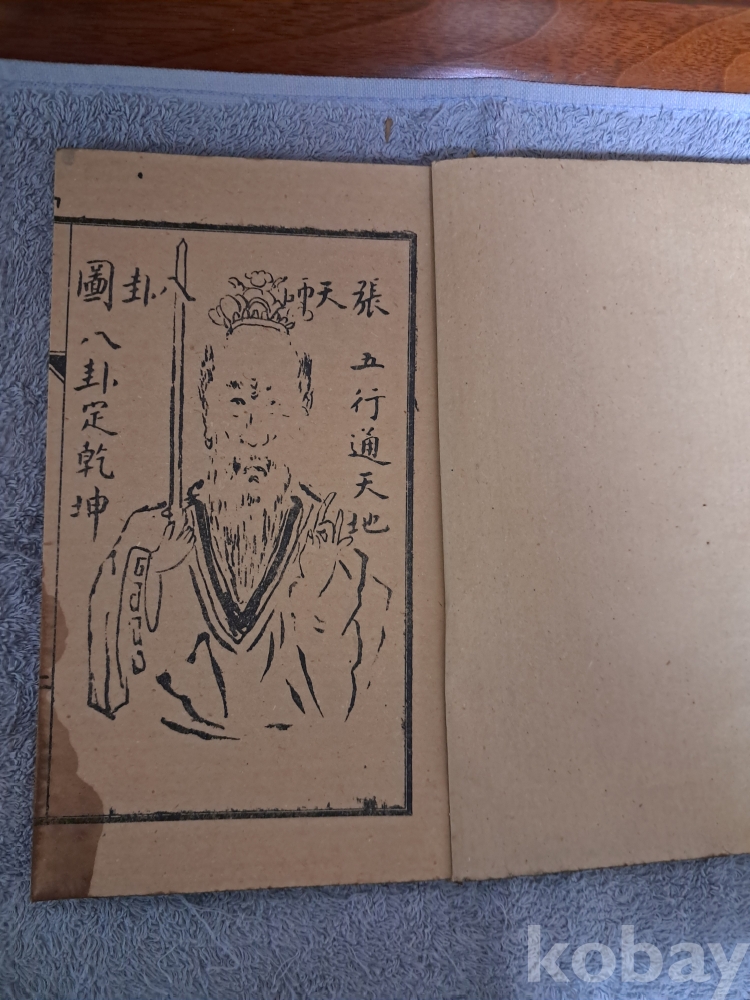 張天師八卦圖
五行通天地
八卦定乾坤
kobay